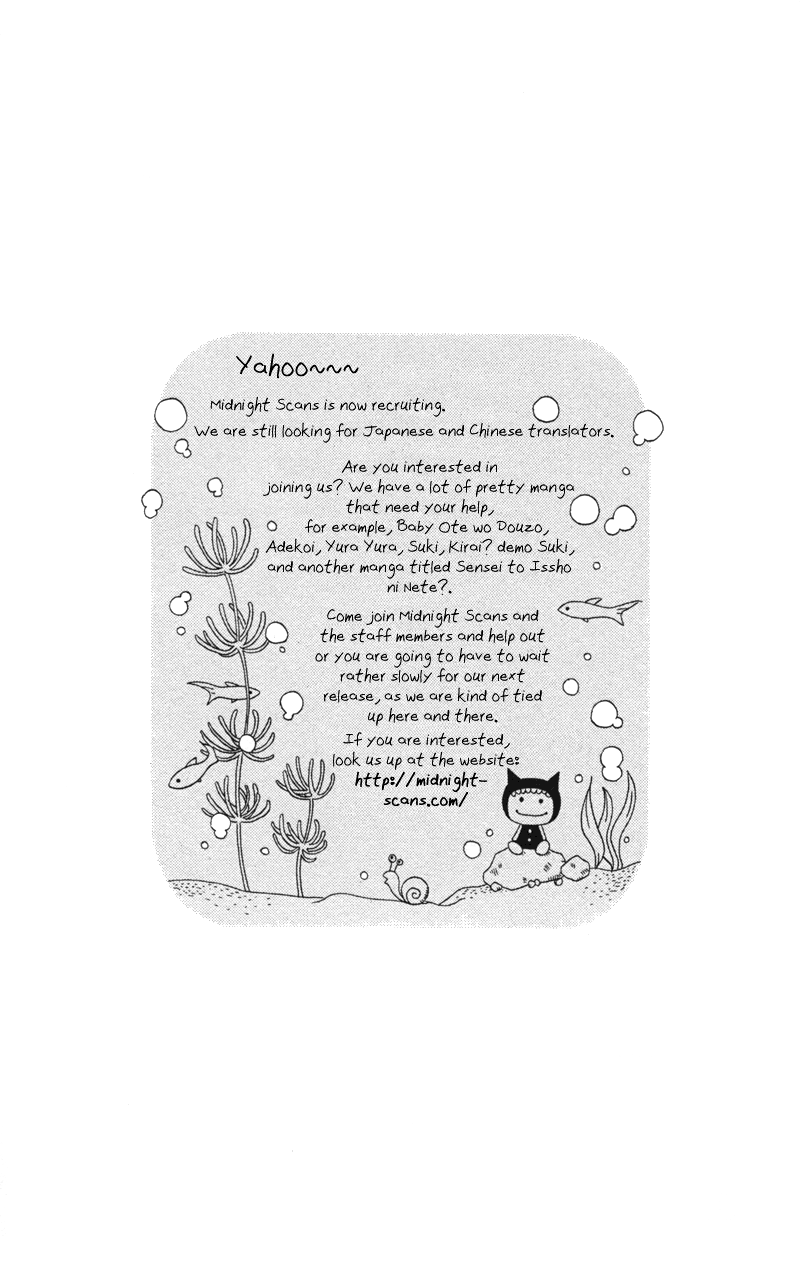 Yahoo~~~
Midnight Scans is now recruiting.
We are still looking for Japanese and Chinese translators.
Are you interested in
joining us? We have a lot of pretty manga
that need your help,
for example, Baby Ote wo Douzo,
Adekoi, Yura Yura, Suki, Kirai? demo Suki,
and another manga titled Sensei to Issho
ni Nete?.
Come join Midnight Scans and
the staff members and help out
or you are going to have to wait
rather slowly for our next
release, as we are kind of tied
up here and there.
If you are interested,
look us up at the website:
http://midnight-
scans.com/